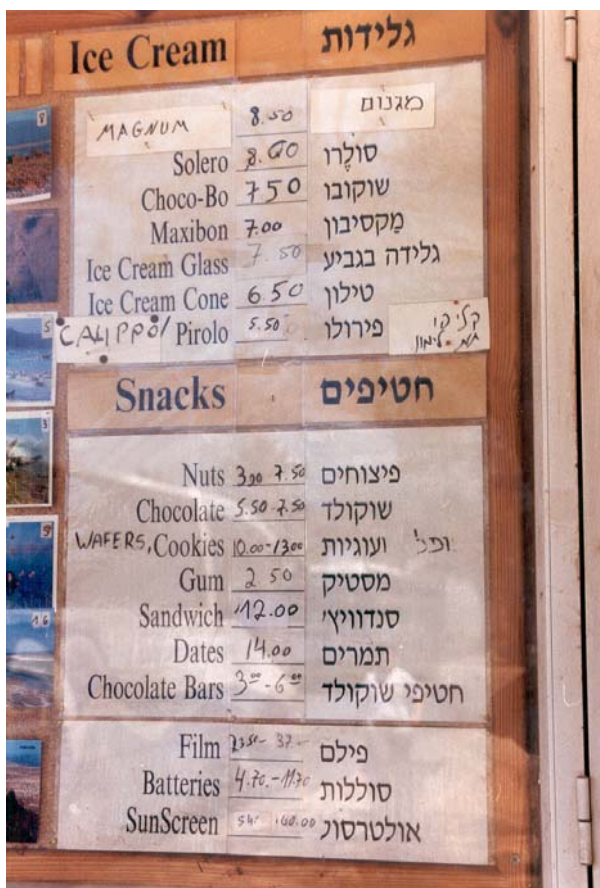 Ice Cream גלידות
MAGNUM 8.50 מגנום
Solero 8.60 סולֶרו
Choco-Bo 7 50 שוקובו
Maxibon 7.00 מַקסיבון
Ice Cream Glass 7.50 גלידה בגביע
Ice Cream Cone 6.50 טילון
CALIPPO/ Pirolo 5.50 פירולו קליפו
תות-לימון
Snacks חטיפים
Nuts 3.00 7.50 פיצוחים
Chocolate 5.50-7.50 שוקולד
WAFERS, Cookies 10.00-13.00 ועוגיות
Gum 2 50 מסטיק
Sandwich 12.00 סנדוויץ'
Dates 14.00 תמרים
Chocolate Bars 3⁰⁰-6⁰⁰ חטיפי שוקולד
Film 37- פילם
Batteries 4.70.-11.70 סוללות
SunScreen אולטרסול